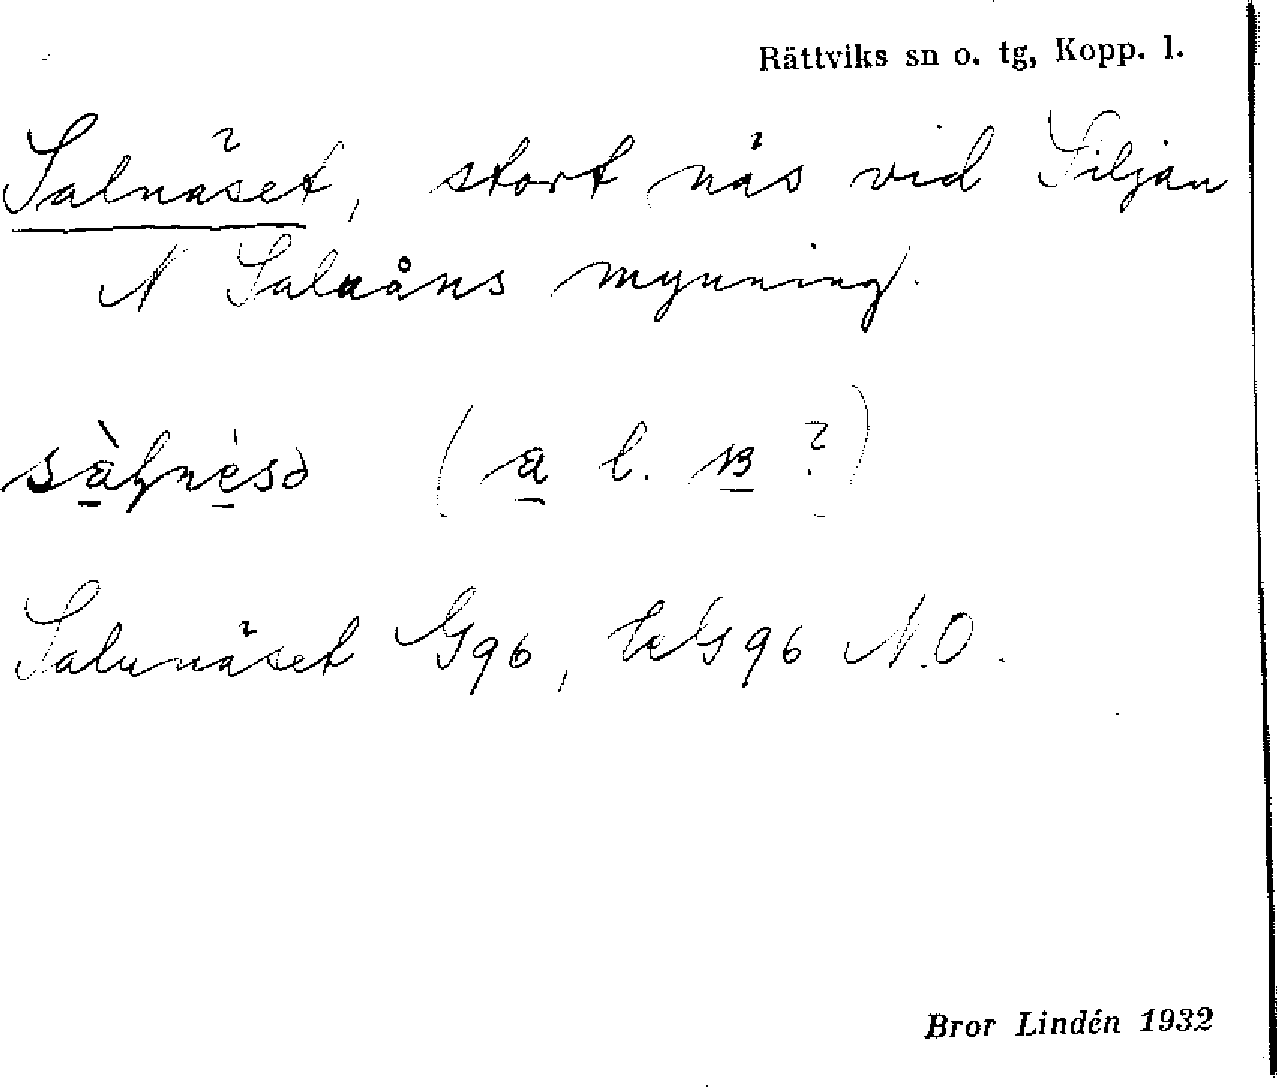 Rättviks sn o. tg, Kopp. l.
Salnäset, stort näs vid Siljan
N Saluåns mynning.
(a l. ʙ ?)
Salunäset G96, Ek G96 N.O.
Bror Lindén 1932